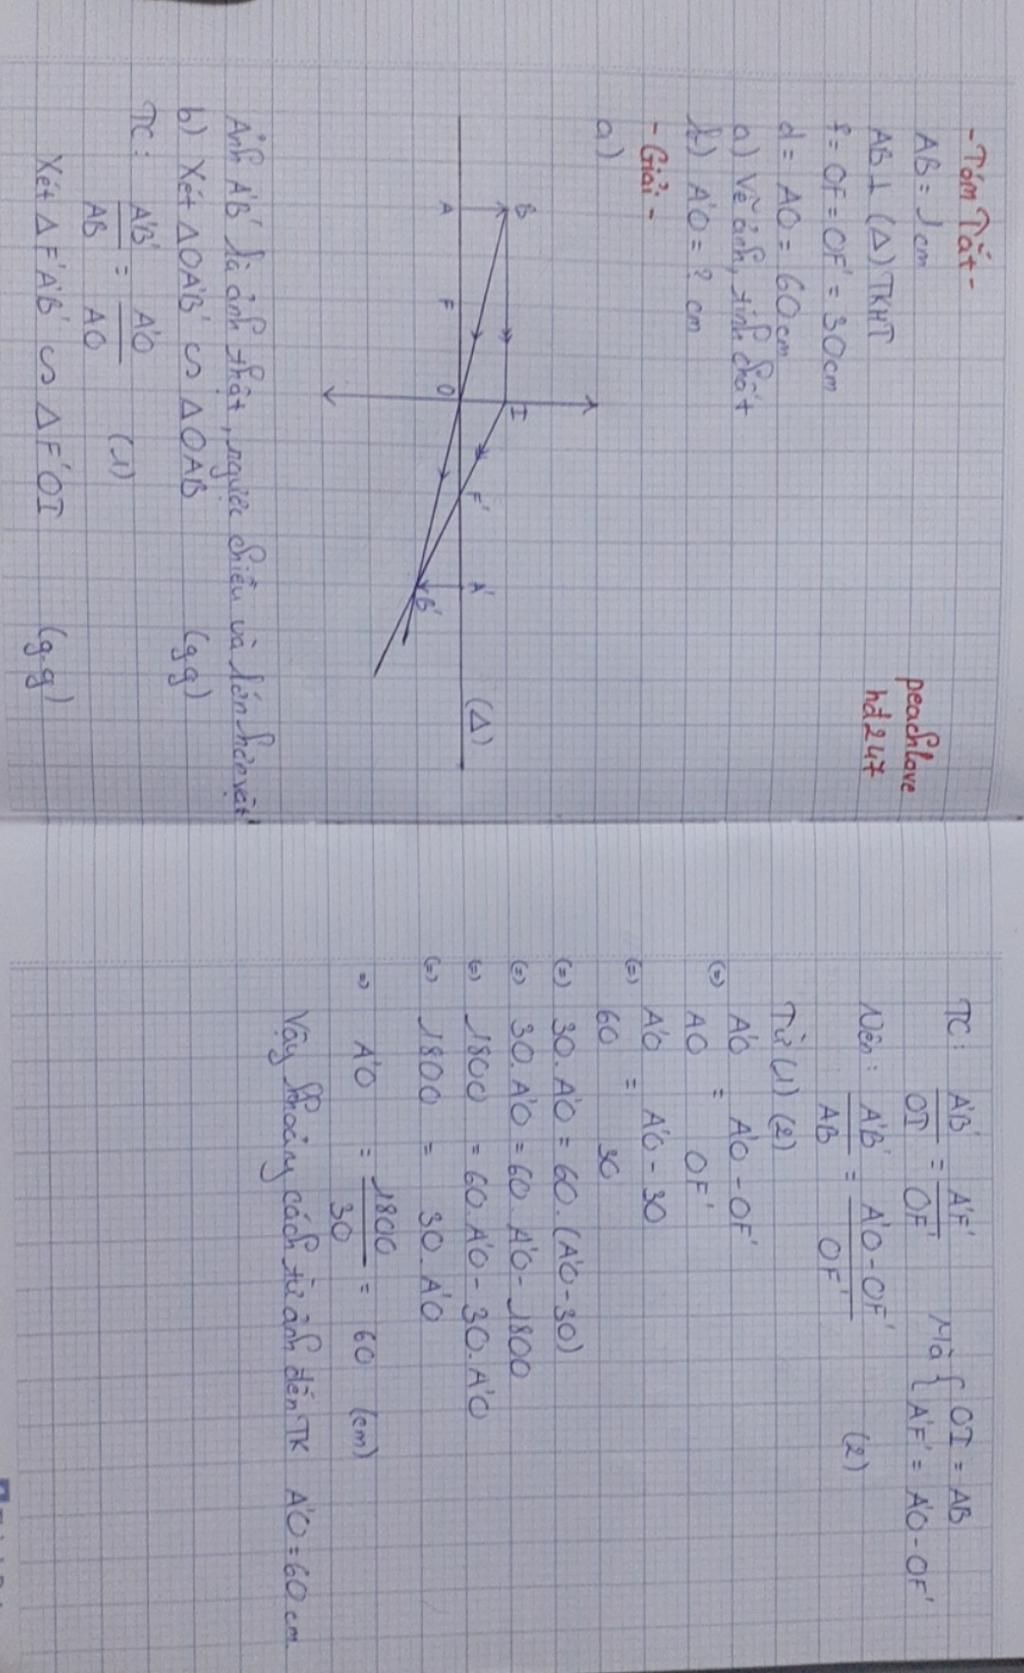 - Tóm Tắt -
AB = 1cm
AB ⊥ (Δ) TKHT
f = OF = OF' = 30cm
d = AO = 60cm
a) Vẽ ảnh, tính chất
b) A'O = ? cm
peachlove
hd247
- Giải -
a)
B
I
A
F
O
F'
A'
B'
(Δ)
Ảnh A'B' là ảnh thật, ngược chiều và lớn hơn vật
b) Xét ΔOA'B' ∽ ΔOAB (g.g)
TC: A'B'/AB = A'O/AO (1)
Xét ΔF'A'B' ∽ ΔF'OI (g.g)
TC: A'B'/OI = A'F'/OF' Mà { OI = AB
A'F' = A'O - OF'
Nên: A'B'/AB = A'O - OF'/OF' (2)
Từ (1) (2)
(=) A'O/AO = A'O - OF'/OF'
(=) A'O/60 = A'O - 30/30
(=) 30. A'O = 60. (A'O - 30)
(=) 30. A'O = 60. A'O - 1800
(=) 1800 = 60. A'O - 30. A'O
(=) 1800 = 30. A'O
=) A'O = 1800/30 = 60 (cm)
Vậy khoảng cách từ ảnh đến TK A'O = 60 cm